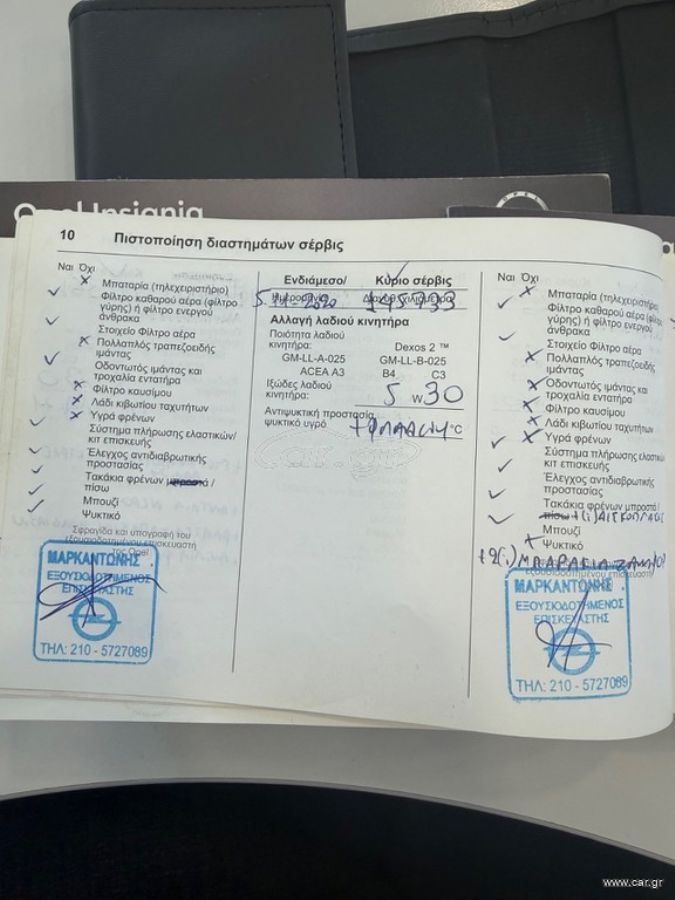 Opel Insignia
OPEL
10 Πιστοποίηση διαστημάτων σέρβις
Ναι Όχι
Μπαταρία (τηλεχειριστήριο)
Φίλτρο καθαρού αέρα (φίλτρο
γύρης) ή φίλτρο ενεργού
άνθρακα
Στοιχείο Φίλτρο αέρα
Πολλαπλός τραπεζοειδής
ιμάντας
Οδοντωτός ιμάντας και
τροχαλία εντατήρα
Φίλτρο καυσίμου
Λάδι κιβωτίου ταχυτήτων
Υγρά φρένων
Σύστημα πλήρωσης ελαστικών/
κιτ επισκευής
Έλεγχος αντιδιαβρωτικής
προστασίας
Τακάκια φρένων μπροστά /
πίσω
Μπουζί
Ψυκτικό
Σφραγίδα και υπογραφή του
εξουσιοδοτημένου επισκευαστή
της Opel
ΜΑΡΚΑΝΤΩΝΗΣ
ΕΞΟΥΣΙΟΔΟΤΗΜΕΝΟΣ
ΕΠΙΣΚΕΥΑΣΤΗΣ
ΤΗΛ: 210 - 5727089
Ενδιάμεσο/ Κύριο σέρβις
5-11-2020 145733
Αλλαγή λαδιού κινητήρα
Ποιότητα λαδιού
κινητήρα: Dexos 2 ™
GM-LL-A-025 GM-LL-B-025
ACEA A3 B4 C3
Ιξώδες λαδιού
κινητήρα: 5 W 30
Αντιψυκτική προστασία
ψυκτικό υγρό °C
car.gr
Ναι Όχι
Μπαταρία (τηλεχειριστήριο)
Φίλτρο καθαρού αέρα (φίλτρο
γύρης) ή φίλτρο ενεργού
άνθρακα
Στοιχείο Φίλτρο αέρα
Πολλαπλός τραπεζοειδής
ιμάντας
Οδοντωτός ιμάντας και
τροχαλία εντατήρα
Φίλτρο καυσίμου
Λάδι κιβωτίου ταχυτήτων
Υγρά φρένων
Σύστημα πλήρωσης ελαστικών/
κιτ επισκευής
Έλεγχος αντιδιαβρωτικής
προστασίας
Τακάκια φρένων μπροστά /
πίσω
Μπουζί
Ψυκτικό
εξουσιοδοτημένου επισκευαστή
ΜΑΡΚΑΝΤΩΝΗΣ
ΕΞΟΥΣΙΟΔΟΤΗΜΕΝΟΣ
ΕΠΙΣΚΕΥΑΣΤΗΣ
ΤΗΛ: 210 - 5727089
www.car.gr